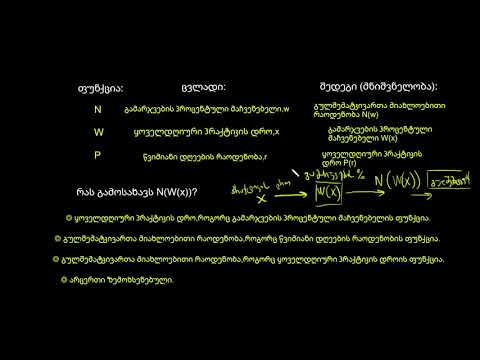 ფუნქცია: ცვლადი: შედეგი (მნიშვნელობა):
N გამარჯვების პროცენტული მაჩვენებელი,w გულშემატკივართა მიახლოებითი რაოდენობა N(w)
W ყოველდღიური პრაქტიკის დრო,x გამარჯვების პროცენტული მაჩვენებელი W(x)
P წვიმიანი დღეების რაოდენობა,r ყოველდღიური პრაქტიკის დრო P(r)
რას გამოსახავს N(W(x))? x W(x) N(W(x))
ყოველდღიური პრაქტიკის დრო,როგორც გამარჯვების პროცენტული მაჩვენებელის ფუნქცია.
გულშემატკივართა მიახლოებითი რაოდენობა,როგორც წვიმიანი დღეების რაოდენობის ფუნქცია.
გულშემატკივართა მიახლოებითი რაოდენობა,როგორც ყოველდღიური პრაქტიკის დროის ფუნქცია.
არცერთი ზემოხსენებული.